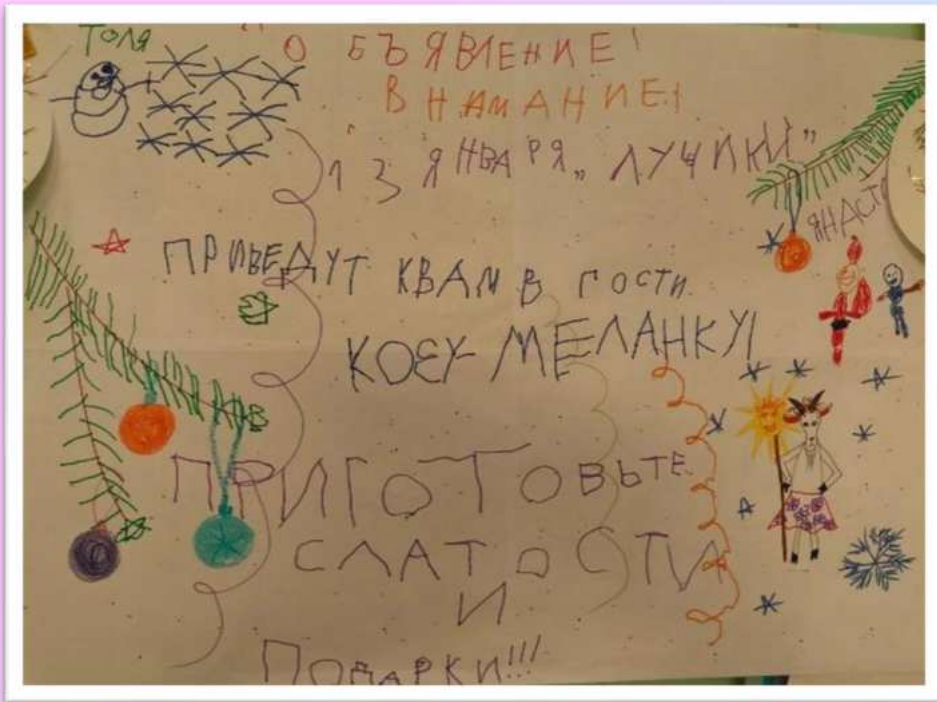 ТОЛЯ
ОБЪЯВЛЕНИЕ!
ВНАМАНИЕ!
13 ЯНВАРЯ „ЛУЧИКИ”
ПРИВЕДУТ КВАМ В ГОСТИ
КОЗУ МЕЛАНКУ!
ПРИГОТОВЬТЕ
СЛАТОСТИ
И
ПОДАРКИ!!!